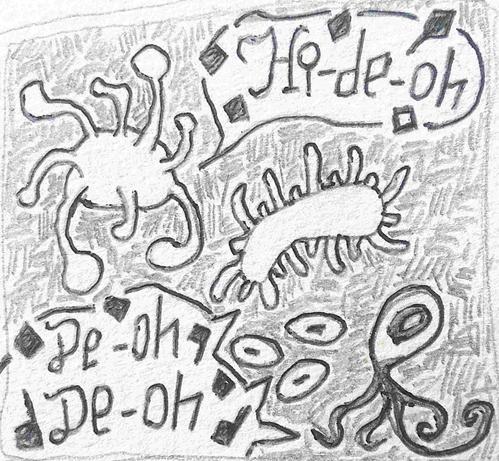 Hi-de-oh
De-oh,
De-oh